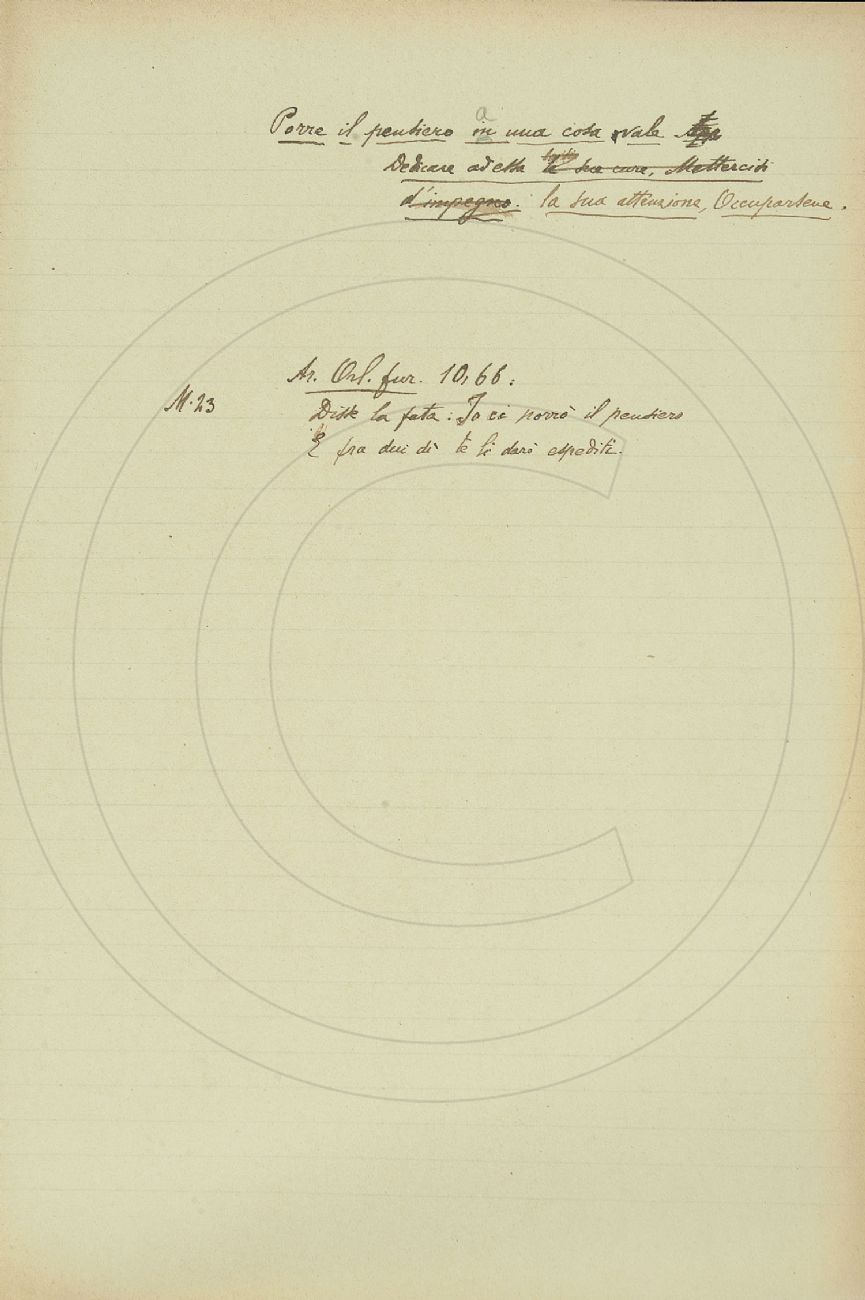 a
Porre il pensiero in una cosa, vale
Dedicare ad essa la sua cura, Mettercisi
d'impegno. la sua attenzione, Occuparsene.
Ar. Orl. fur. 10, 66:
M. 23
Disse la fata: Io ci porrò il pensiero
E fra dui dì te li darò espediti.